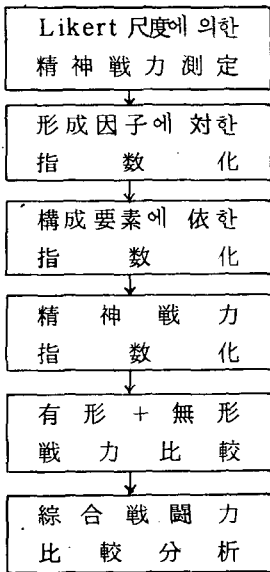 Likert 尺度에 의한
精神戦力測定
形成因子에 対한
指数化
構成要素에 依한
指数化
精神戦力
指数化
有形 + 無形
戦力比較
綜合戦闘力
比較分析